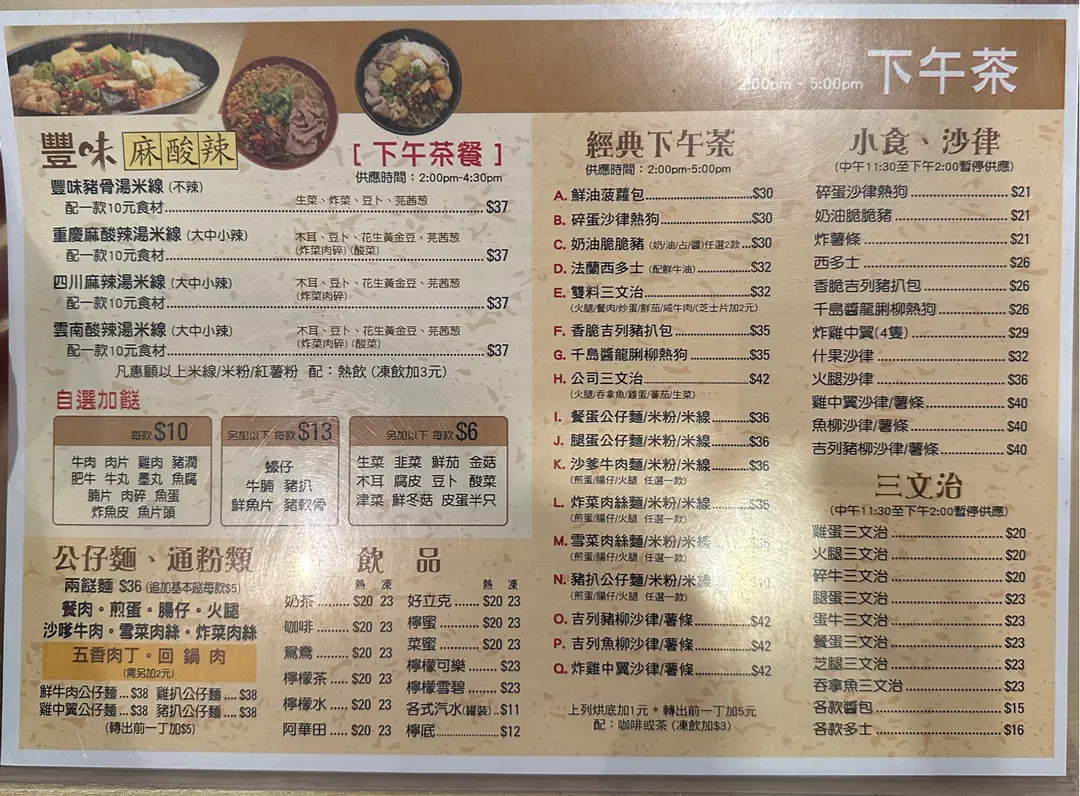 2:00pm - 5:00pm 下午茶
豐味 麻酸辣
[ 下午茶餐 ]
供應時間：2:00pm-4:30pm
豐味豬骨湯米線 (不辣)
生菜、炸菜、豆卜、芫茜葱
配一款10元食材 $37
重慶麻酸辣湯米線 (大中小辣)
木耳、豆卜、花生黃金豆、芫茜葱
(炸菜肉碎) (酸菜)
配一款10元食材 $37
四川麻辣湯米線 (大中小辣)
木耳、豆卜、花生黃金豆、芫茜葱
(炸菜肉碎)
配一款10元食材 $37
雲南酸辣湯米線 (大中小辣)
木耳、豆卜、花生黃金豆、芫茜葱
(炸菜肉碎) (酸菜)
配一款10元食材 $37
凡惠顧以上米線/米粉/紅薯粉 配：熱飲 (凍飲加3元)
自選加餸
每款 $10
牛肉 肉片 雞肉 豬潤
肥牛 牛丸 墨丸 魚腐
腩片 肉碎 魚蛋
炸魚皮 魚片頭
另加以下 每款 $13
蠔仔
牛腩 豬扒
鮮魚片 豬軟骨
另加以下 每款 $6
生菜 韭菜 鮮茄 金菇
木耳 腐皮 豆卜 酸菜
津菜 鮮冬菇 皮蛋半只
公仔麵、通粉類
兩餸麵 $36 (追加基本餸每款$5)
餐肉。煎蛋。腸仔。火腿
沙爹牛肉。雪菜肉絲。炸菜肉絲
五香肉丁。回鍋肉
(需另加2元)
鮮牛肉公仔麵 $38 雞扒公仔麵 $38
雞中翼公仔麵 $38 豬扒公仔麵 $38
(轉出前一丁加$5)
飲品
熱 凍 熱 凍
奶茶 $20 23 好立克 $20 23
咖啡 $20 23 檸蜜 $20 23
鴛鴦 $20 23 菜蜜 $20 23
檸檬茶 $20 23 檸檬可樂 $23
檸檬水 $20 23 檸檬雪碧 $23
阿華田 $20 23 各式汽水(罐裝) $11
檸底 $12
經典下午茶
供應時間：2:00pm-5:00pm
A. 鮮油菠蘿包 $30
B. 碎蛋沙律熱狗 $30
C. 奶油脆脆豬 (奶/油/占/醬)任選2款 $30
D. 法蘭西多士 (配鮮牛油) $32
E. 雙料三文治 $32
(火腿/餐肉/炒蛋/鮮茄/咸牛肉/(芝士片加2元)
F. 香脆吉列豬扒包 $35
G. 千島醬龍脷柳熱狗 $35
H. 公司三文治 $42
(火腿/吞拿魚/雞蛋/蕃茄/生菜)
I. 餐蛋公仔麵/米粉/米線 $36
J. 腿蛋公仔麵/米粉/米線 $36
K. 沙爹牛肉麵/米粉/米線 $36
(煎蛋/腸仔/火腿 任選一款)
L. 炸菜肉絲麵/米粉/米線 $36
(煎蛋/腸仔/火腿 任選一款)
M. 雪菜肉絲麵/米粉/米線 $36
(煎蛋/腸仔/火腿 任選一款)
N. 豬扒公仔麵/米粉/米線
(煎蛋/腸仔/火腿 任選一款)
O. 吉列豬柳沙律/薯條 $42
P. 吉列魚柳沙律/薯條 $42
Q. 炸雞中翼沙律/薯條 $42
上列烘底加1元 * 轉出前一丁加5元
配：咖啡或茶 (凍飲加$3)
小食、沙律
(中午11:30至下午2:00暫停供應)
碎蛋沙律熱狗 $21
奶油脆脆豬 $21
炸薯條 $21
西多士 $26
香脆吉列豬扒包 $26
千島醬龍脷柳熱狗 $26
炸雞中翼(4隻) $29
什果沙律 $32
火腿沙律 $36
雞中翼沙律/薯條 $40
魚柳沙律/薯條 $40
吉列豬柳沙律/薯條 $40
三文治
(中午11:30至下午2:00暫停供應)
雞蛋三文治 $20
火腿三文治 $20
碎牛三文治 $20
腿蛋三文治 $23
蛋牛三文治 $23
餐蛋三文治 $23
芝腿三文治 $23
吞拿魚三文治 $23
各款醬包 $15
各款多士 $16